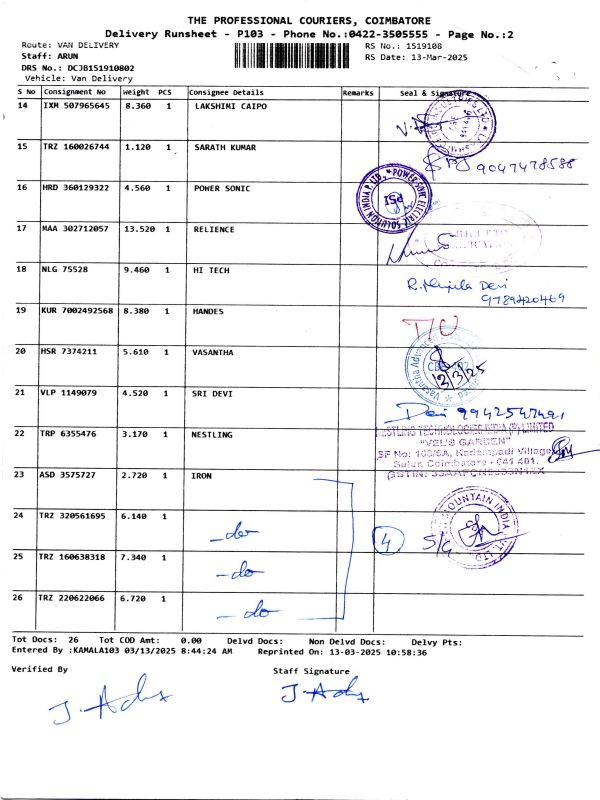 THE PROFESSIONAL COURIERS, COIMBATORE
Delivery Runsheet - P103 - Phone No.:0422-3505555 - Page No.:2
Route: VAN DELIVERY RS No.: 1519108
Staff: ARUN RS Date: 13-Mar-2025
DRS No.: DCJB1519108O2
Vehicle: Van Delivery
S No Consignment No Weight PCS Consignee Details Remarks Seal & Signature
14 IXM 507965645 8.360 1 LAKSHIMI CAIPO
15 TRZ 160026744 1.120 1 SARATH KUMAR 9047478588
16 HRD 360129322 4.560 1 POWER SONIC
POWER SONIC ELECTRIC SOLUTION INDIA P. LTD. PSI
17 MAA 302712057 13.520 1 RELIENCE
18 NLG 75528 9.460 1 HI TECH
R. Devi
9789420469
19 KUR 7002492568 8.380 1 HANDES
20 HSR 7374211 5.610 1 VASANTHA
Vasantha Advanced
12/3/25
21 VLP 1149079 4.520 1 SRI DEVI
Devi
22 TRP 6355476 3.170 1 NESTLING
NESTLING TECHNOLOGIES INDIA (P) LIMITED
"VEL'S GARDEN"
SF No: 103/6A, Kadampadi Village
Sulur, Coimbatore - 641 401.
23 ASD 3575727 2.720 1 IRON
MOUNTAIN INDIA PVT. LTD.
24 TRZ 320561695 6.140 1 - do 4 S/G
25 TRZ 160638318 7.340 1 - do
26 TRZ 220622066 6.720 1 - do
Tot Docs: 26 Tot COD Amt: 0.00 Delvd Docs: Non Delvd Docs: Delvy Pts:
Entered By :KAMALA103 03/13/2025 8:44:24 AM Reprinted On: 13-03-2025 10:58:36
Verified By Staff Signature